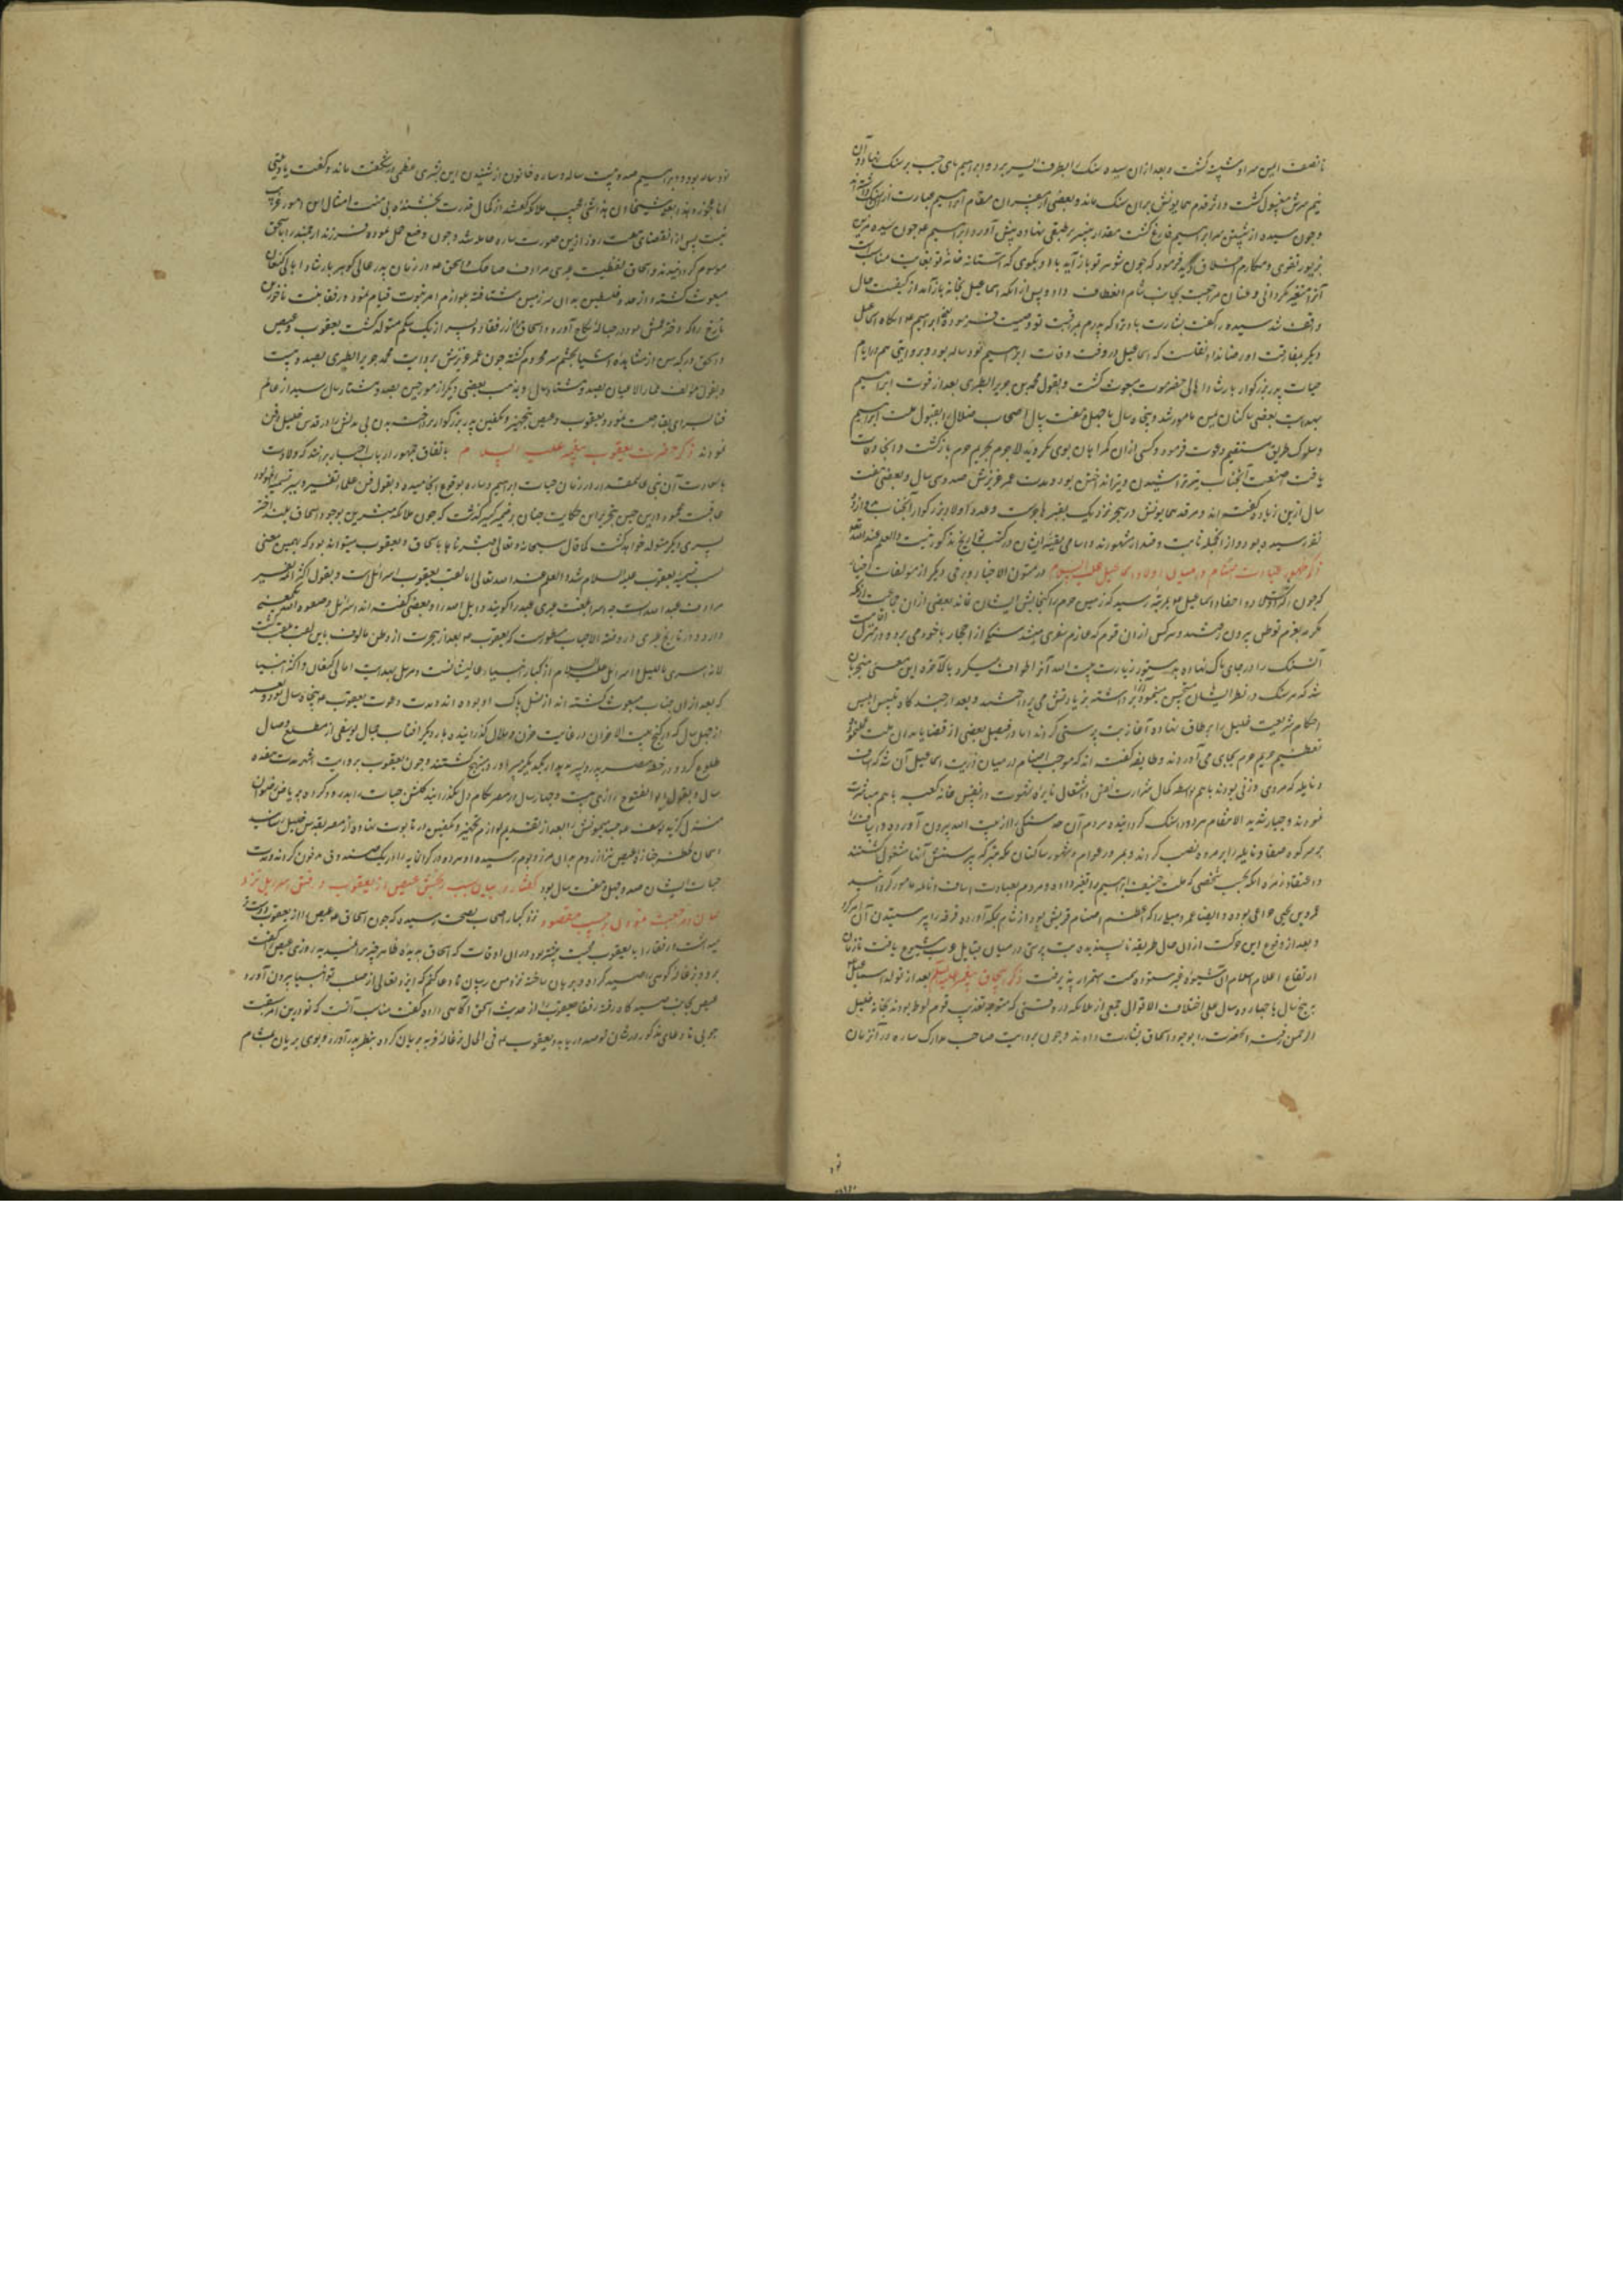 تا نصف ایمن سر او شسته گشت و بعد از آن سیده سنک را بطرف ایسر برد و ابراهیم پای چپ بر سنک نهاد و آن
نیم سرش مغسول گشت و اثر قدم همایونش بر آن سنک ماند و بعضی از مفسران مقام ابراهیم عبارت از آن سنک داشته‌اند
و چون سیده از شستن سر ابراهیم فارغ گشت مقداری پنیر بر طبقی نهاده پیش آورد و ابراهیم چون سیده را بدین
فرمود که چون شوهر تو باز آید با او بکوی که آستانه خانه تو بغایت مناسبست
آنرا متغیر نکردانی و عنان مراجعت بجانب شام انعطاف داد و پس از آنکه اسماعیل بخانه باز آمد از کیفیت حال
واقف شد سیده را گفت بشارت باد ترا که پدرم بمراقبت تو وصیت فرموده
دیگر مفارقت او رضا نداد نقلست که اسماعیل در وقت وفات ابراهیم نود ساله بود و بروایتی هم در ایام
حیات پدر بزرگوار بارشاد اهالی حضرموت مبعوث گشت و بقول محمد بن جریر الطبری بعد از فوت ابراهیم
بهدایت بعضی ساکنان یمن مامور شد و پنجاه سال یا چهل و هفت سال اصحاب ضلال را بقبول ملت ابراهیم
و سلوک طریق مستقیم دعوت فرمود و کسی از آن گمراهان بوی نگروید لاجرم بحریم حرم بازگشت و آنجا وفات
یافت صنعت آنجناب تیر تراشیدن و تیر انداختن بود و مدت عمر عزیزش صد و سی سال و بعضی هفت
سال ازین زیاده گفته‌اند و مرقد همایونش در حجر نزدیک بقبر هاجرست و عدد اولاد بزرگوار آنجناب بدوازده
نفر رسیده بود و از آنجمله ثابت و قیدار مشهورند و اسامی بقیه ایشان در کتب تواریخ مذکور نیست و العلم عند الله تعالی
ذکر ظهور عبادت اصنام در میان اولاد اسماعیل علیه السلام در متون الاخبار و برخی دیگر از مولفات اخیار
که چون کثرت اولاد و احفاد اسماعیل بمرتبه رسید که زمین حرم را گنجایش ایشان نماند بعضی از آن جماعت از مکه
مکرمه بعزم توطن بیرون رفتند و هر کس از آن قوم که عازم سفری میشد سنکی از احجار با خود می برد و در منزل اقامت
آن سنک را در جای پاک نهاده بدستور زیارت بیت الله آنرا طواف میکرد بالاخره این معنی منجر بآن
شد که هر سنک در نظر ایشان مستحسن مینمود برداشته بزیارتش می پرداختند و بعد از چند گاه بتلبیس ابلیس
احکام شریعت خلیل را بر طاق نهاده آغاز بت پرستی کردند اما در فیصل بعضی از قضایا بدان ملت
تعظیم حریم حرم بجای می آوردند و طایفه گفته‌اند که موجب اصنام در میان ذریت اسماعیل آن شد که اساف
و نایله که مردی و زنی بودند باهم بواسطه کمال شرارت نفس و اشتعال نایره شهوت در نفس خانه کعبه باهم مباشرت
نمودند و جبار شدید الانتقام هر دو را سنک گردانیده مردم آن دو سنک را از بیت الله بیرون آورده اساف را
بر سر کوه صفا و نایله را بر مروه نصب کردند و بمرور اعوام و شهور ساکنان مکه متبرکه بپرستش آنها مشغول گشتند
و اعتقاد زمره آنکه نخست شخصی که ملت حنیف ابراهیم را تغییر داده و مردم بعبادت اساف و نایله مامور گردانید
عمرو بن لحی خزاعی بوده و ایضا عمرو هبل را که اعظم اصنام قریش بود از شام بمکه آورده فرقه را بپرستیدن آن امر کرد
و بعد از وقوع این حرکت از آن ضال طریقه ناپسندیده بت پرستی در میان قبایل عرب شیوع یافت تا زمان
ارتفاع اعلام اسلام آن شیوه غیر ستوده سمت استمرار پذیرفت ذکر اسحاق پیغمبر علیه السلم بعد از تولد اسماعیل
به پنج سال یا چهارده سال علی اختلاف الاقوال جمعی از ملائکه در وقتی که متوجه تعذیب قوم لوط بودند بخانه خلیل
الرحمن رفته آنحضرت را بوجود اسحاق بشارت دادند و چون بروایت صاحب مدارک ساره در آنزمان
نود
نود ساله بود و ابراهیم صد و بیست ساله و ساره خاتون از شنیدن این بشری عظمی در شگفت ماند و گفت یا ویلتی
انا عجوز و هذا بعلی شیخا ان هذا لشی عجیب ملائکه گفتند از کمال قدرت بخشنده بی منت امثال این امور غریب
نیست پس از انقضای هفت روز ازین صورت ساره حامله شد و چون وضع حمل نموده فرزند ارجمند را اسحق
موسوم گردانیدند و اسحاق لفظیست عبری مرادف ضاحک و اسحق در زمان پدر عالی گوهر بارشاد اهالی کنعان
مبعوث گشته و از حدود فلسطین بدان سرزمین شتافته بلوازم امر نبوت قیام نمود و رفقا بنت ناحور بن
تارخ را که دختر عمش بود در حباله نکاح آورد و اسحاق را از رفقا دو پسر از یک شکم متولد گشت یعقوب و عیص
و اسحق در کبر سن از مشاهده اشیا بچشم سر محروم گشته چون عمر عزیزش بروایت محمد جریر الطبری بصد و بیست
و بقول مولف بصد و شصت سال و بمذهب بعضی دیگر از مورخین بصد و هشتاد سال رسید از عالم
فنا بسرای بقا رحلت نمود و یعقوب و عیص بتجهیز و تکفین پدر بزرگوار پرداخت بدن بی بدلش را در قدس خلیل دفن
نمودند ذکر حضرت یعقوب پیغمبر علیه السلام باتفاق جمهور ارباب اخبار بر آنند که ولادت
با سعادت آن نبی عالیمقدار در زمان حیات ابراهیم و ساره بوقوع انجامیده و بقول فرق علماء تفسیر و سیر
عاقبت محمود درین حین بتحریر این حکایت چنان بر ضمیر گذشت که چون ملائکه مبشرین بوجود اسحاق گفتند از
پسری دیگر متولد خواهد گشت کما قال سبحانه و تعالی فبشرناها باسحاق و یعقوب میتواند بود که همین معنی
سبب تسمیه یعقوب علیه السلام شد و العلم عند الله تعالی اما لقب یعقوب اسرائیل است و بقول اکثر اهل تفسیر
مرادف عبد الله است چه اسرا بلغت عبری عبد را گویند و ایل الله را و بعضی گفته‌اند اسرائیل
دارد و از تاریخ طبری و روضة الاحباب بوضوح پیوست که یعقوب بعد از هجرت از وطن مالوف باین لقب ملقب گشت
لانه اسری باللیل و اسرائیل علیه السلام از کبار انبیاء عالیشانست و مرسل بهدایت اهالی کنعان و اکثر انبیا
که بعد از آن جناب مبعوث گشته‌اند از نسل پاک او بوده‌اند و مدت دعوت یعقوب پنجاه سال بود و بعد
از چهل سال که در کنج بیت الاحزان در غایت حزن و ملال گذرانیده بار دیگر آفتاب جمال یوسفی از مطلع وصال
طلوع کرد و در خطه مصر پدر و پسر بدیدار یکدیگر مسرور و مبتهج گشتند و چون یعقوب بروایت اشهر مدت هفده
سال و بقول ابو الفتوح رازی بیست و چهار سال در مصر بکام دل بگذرانید گلشن حیات را بدرود کرده بریاض رضوان
منزل گزید یوسف بموجب وصیتش بعد از تقدیم لوازم تجهیز و تکفین در تابوت نهاده از مصر بقدس خلیل رسانید
و همان لحظه جنازه عیص نیز از روم بدان مرز و بوم رسیده و هر دو برادر گرانمایه را در یک صندوق مدفون کردند و مدت
حیات ایشان صد و چهل و هفت سال بود گفتار در بیان سبب رنجش عیص از یعقوب و رفتن اسرائیل نزد
لیان و مراجعت نمودن بر حسب مقصود نزد کبار اصحاب بصحت رسیده که چون اسحاق عیص را از یعقوب دوست تر
میداشت و رفقا را با یعقوب محبت بیشتر بود در آن اوقات که اسحاق بدیده ظاهر چیزی نمیدید روزی عیص را گفت
برو و بزغاله کوهی را صید کرده و بریان ساخته نزد من رسان تا دعا کنم که ایزد تعالی از صلب تو انبیا بیرون آورد
عیص بجانب صیدگاه رفته رفقا یعقوب را از حدیث اسحق آگاهی داده گفت مناسب آنست که تو درین امر سبقت
جویی تا دعای مذکور در شان تو صدور یابد و یعقوب فی الحال بزغاله فربه بریان کرده بنظر پدر آورد و بوی بریان بمشام